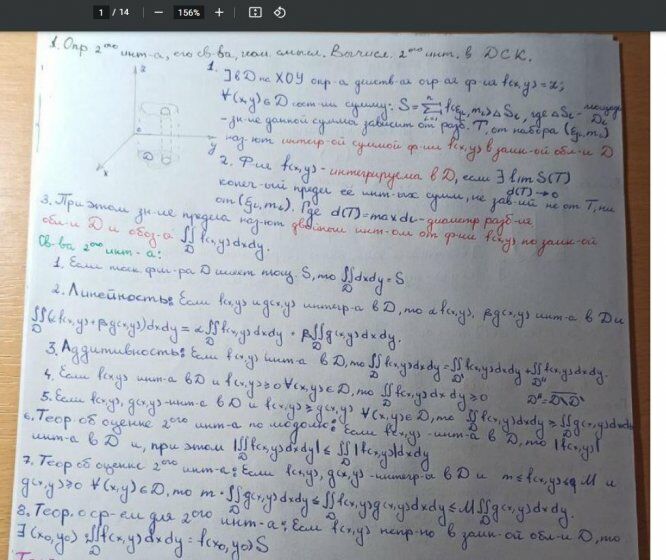 1 / 14
156%
1. Опр 2ого инт-а, его св-ва, геом. смысл. Вычисл. 2ого инт. в ДСК.
1. ∃ в D пл XOY опр-а действ-ая огр-ая ф-ия f(x,y) = z;
∀(x,y)∈D. сост-им сумму: S = Σ f(ξi, mi) ΔSi, где ΔSi - площадь Di
- зн-ие данной сумма зависит от разб. T, от набора (ξi, mi)
наз-ют интегр-ой суммой ф-ии f(x,y) в замк-ой обл-и D
2. Ф-ия f(x,y) - интегрируема в D, если ∃ lim S(T)
d(T)→0
конеч-ый предел её инт-ых сумм, не зав-ий не от T, ни
от (ξi, mi). Где d(T) = max di - диаметр разб-ия
3. При этом зн-ие предела наз-ют двойным инт-ом от ф-ии f(x,y) по замк-ой
обл-и D и обоз-а ∬ f(x,y) dxdy.
D
Св-ва 2ого инт-а:
1. Если плоск. фиг-ра D имеет площ. S, то ∬ dxdy = S
D
2. Линейность: Если f(x,y) и g(x,y) интегр-а в D, то αf(x,y), βg(x,y) инт-а в D и
∬(αf(x,y)+βg(x,y))dxdy = α∬f(x,y)dxdy + β∬g(x,y)dxdy.
D D D
3. Аддитивность: Если f(x,y) инт-а в D, то ∬f(x,y)dxdy = ∬f(x,y)dxdy + ∬f(x,y)dxdy.
D D' D''
4. Если f(x,y) инт-а в D и f(x,y) ≥ 0 ∀(x,y)∈D, то ∬f(x,y)dx dy ≥ 0 D'' = D\D'
D
5. Если f(x,y), g(x,y) - инт-а в D и f(x,y) ≥ g(x,y) ∀(x,y)∈D, то ∬f(x,y)dxdy ≥ ∬g(x,y)dxdy
D D
6. Теор. об оценке 2ого инт-а по модулю: Если f(x,y) - инт-а в D, то |f(x,y)|
инт-а в D и, при этом |∬f(x,y)dxdy| ≤ ∬|f(x,y)|dxdy
D D
7. Теор об оценке 2ого инт-а: Если f(x,y), g(x,y) - интегр-а в D и m ≤ f(x,y) ≤ M и
g(x,y) ≥ 0 ∀(x,y)∈D, то m·∬g(x,y)dxdy ≤ ∬f(x,y)g(x,y)dxdy ≤ M∬g(x,y)dxdy.
D D D
8. Теор. о ср-ем для 2ого инт-а: Если f(x,y) непр-но в замк-ой обл-и D, то
∃ (x0, y0): ∬f(x,y)dxdy = f(x0, y0) S
D